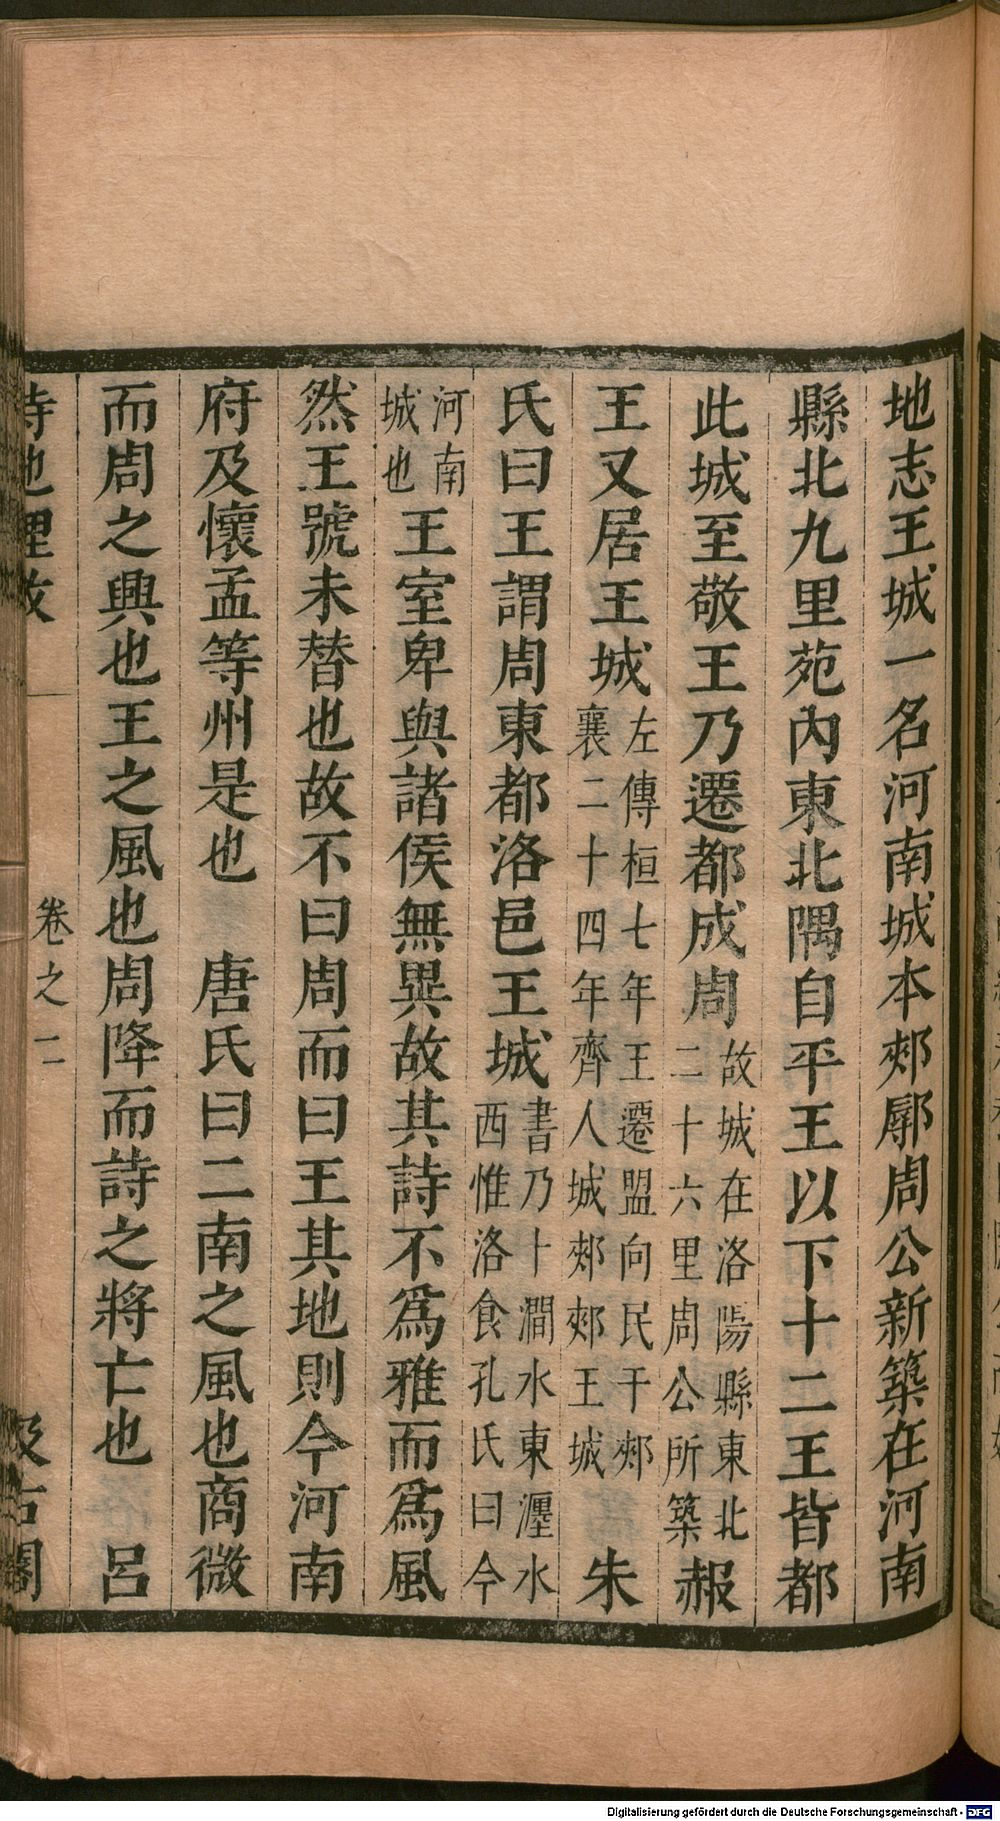 地志王城一名河南城本郟鄏周公新築在河南
縣北九里苑內東北隅自平王以下十二王皆都
此城至敬王乃遷都成周故城在洛陽縣東北二十六里周公所築赧
王又居王城左傳桓七年王遷盟向民于郟襄二十四年齊人城郟郟王城朱
氏曰王謂周東都洛邑王城書乃卜澗水東瀍水西惟洛食孔氏曰今
河南城也王室卑與諸侯無異故其詩不爲雅而爲風
然王號未替也故不曰周而曰王其地則今河南
府及懷孟等州是也　唐氏曰二南之風也商微
而周之興也王之風也周降而詩之將亡也　呂
詩地理攷　卷之二　汲古閣
Digitalisierung gefördert durch die Deutsche Forschungsgemeinschaft - DFG